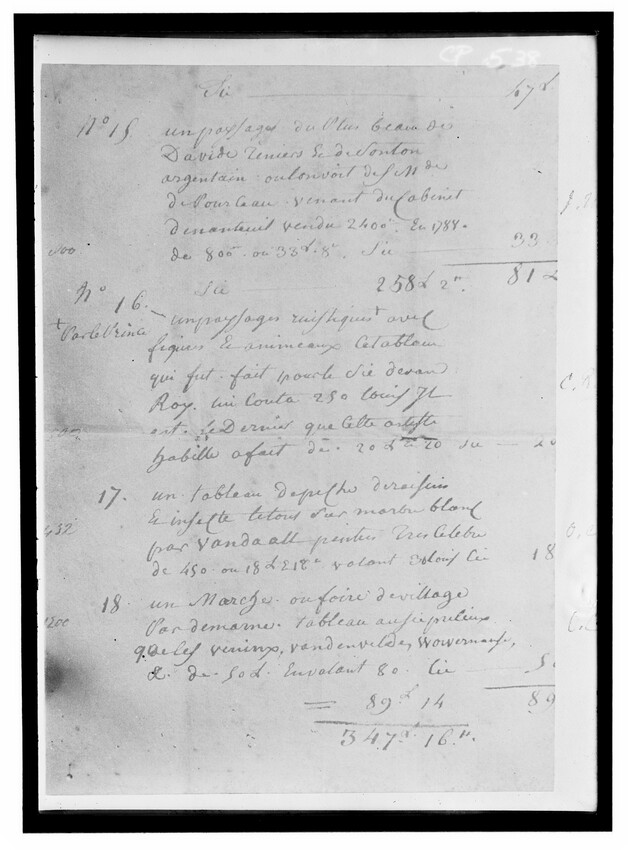 CP 538
Sie 47 £
N° 15 un paysages du Plus beau de
Davide Teniers & de Sonton
argentain ou lon voit
de Pourceau venant du Cabinet
vendu 2400 En 1788
800 de 800 ou 33 £ 8 s Sie 33
Sie 258 £ 2 s. 81 £
N° 16. un paysages rustiques avec
+ Par le Prince
figures & animeaux Ce tableau
qui fut fait pour le
Roy. lui Couta 250 louis Il
est Le Dernier que Cette artiste
habille a fait de 20 £ 20 sie 20
17. un tableau de peche de raisin
& insecte sur marbre blanc
432 par Vandaall peintre Tres Celebre
de 450 ou 18 £ 12 s valant 30 louis Cie 18
18. un Marche ou foire de village
1200 Par demarne tableau aussi precieux
que les vandenvelde, Wowermans,
& de 50 £ En valant 80 Cie 50
= 89 £ 14 89
347 £ 16 s.